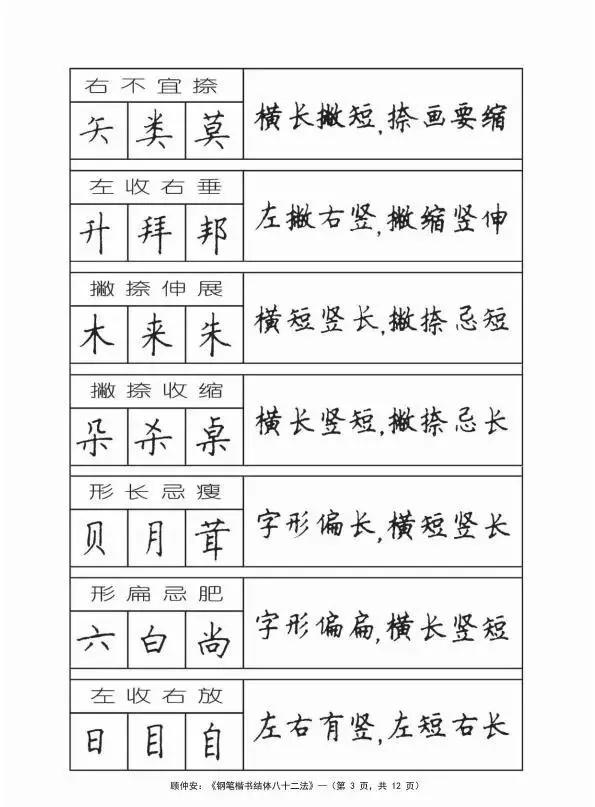 右不宜捺
矢 类 莫
横长撇短,捺画要缩
左收右垂
升 拜 邦
左撇右竖,撇缩竖伸
撇捺伸展
木 来 朱
横短竖长,撇捺忌短
撇捺收缩
朵 杀 桌
横长竖短,撇捺忌长
形长忌瘦
贝 月 茸
字形偏长,横短竖长
形扁忌肥
六 白 尚
字形偏扁,横长竖短
左收右放
日 目 自
左右有竖,左短右长
顾仲安：《钢笔楷书结体八十二法》—（第 3 页，共 12 页）